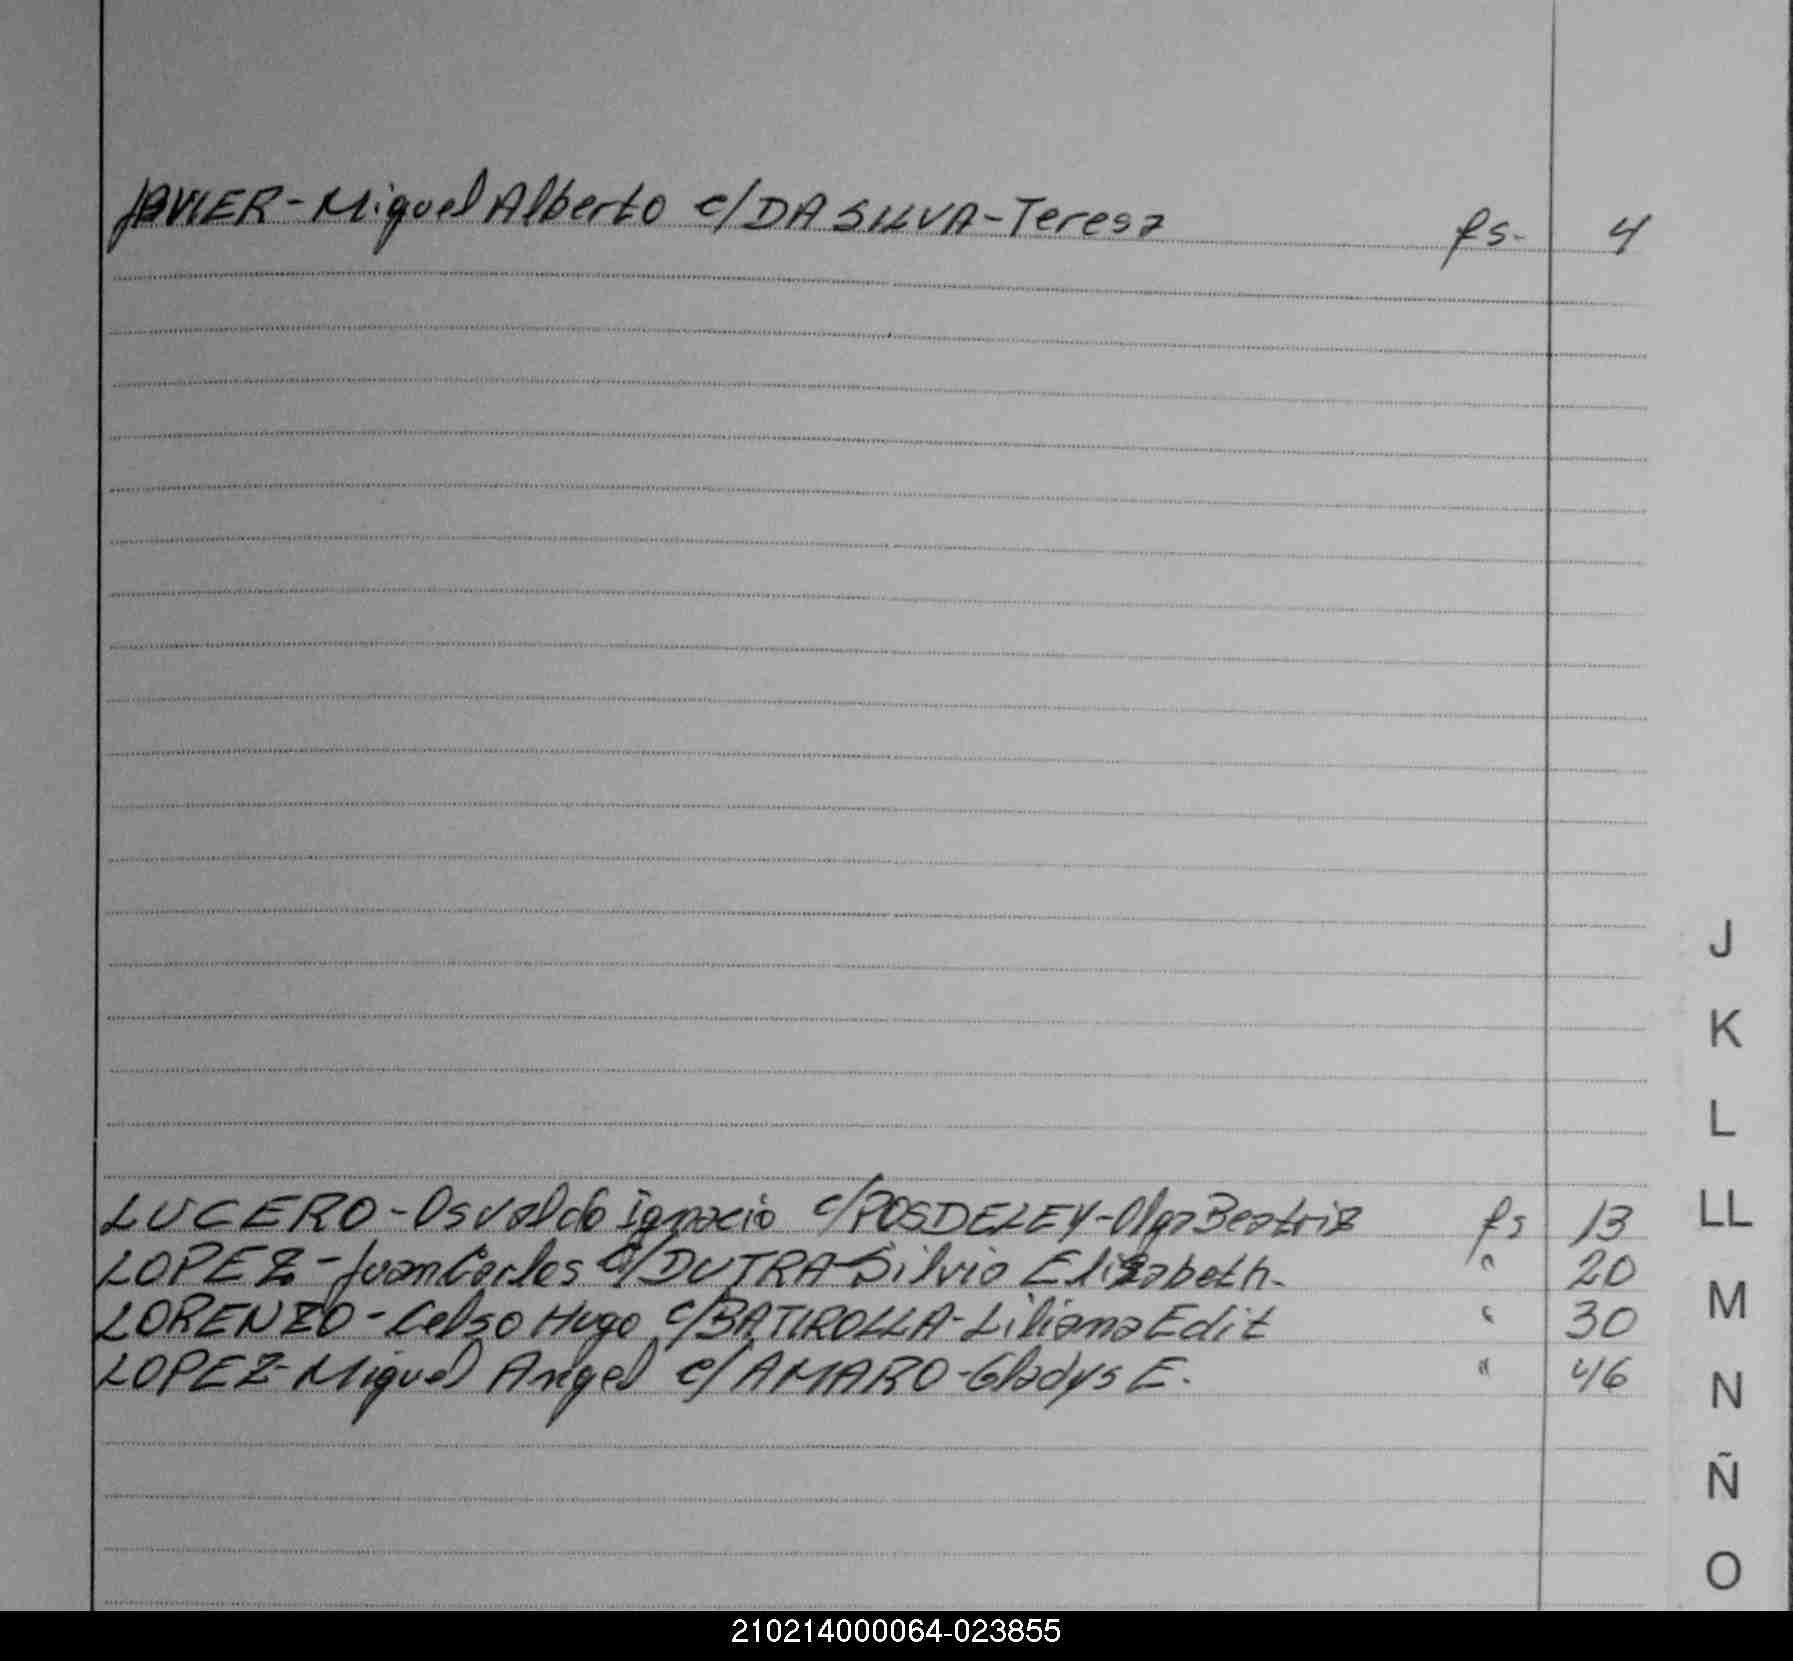 JAVIER-Miguel Alberto c/DA SILVA-Teresa fs. 4
LUCERO-Osvaldo Ignacio c/POSDELEY-Olga Beatriz fs 13
LOPEZ-Juan Carlos c/DUTRA-Silvia Elizabeth. " 20
LORENZO-Celso Hugo c/BATIROLLA-Liliana Edit " 30
LOPEZ-Miguel Angel c/AMARO-Gladys E. " 46
J
K
L
LL
M
N
Ñ
O
210214000064-023855